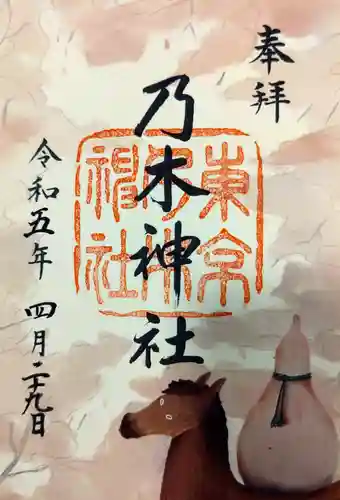 奉拝
東京乃木神社
乃木神社
令和五年 四月二十九日